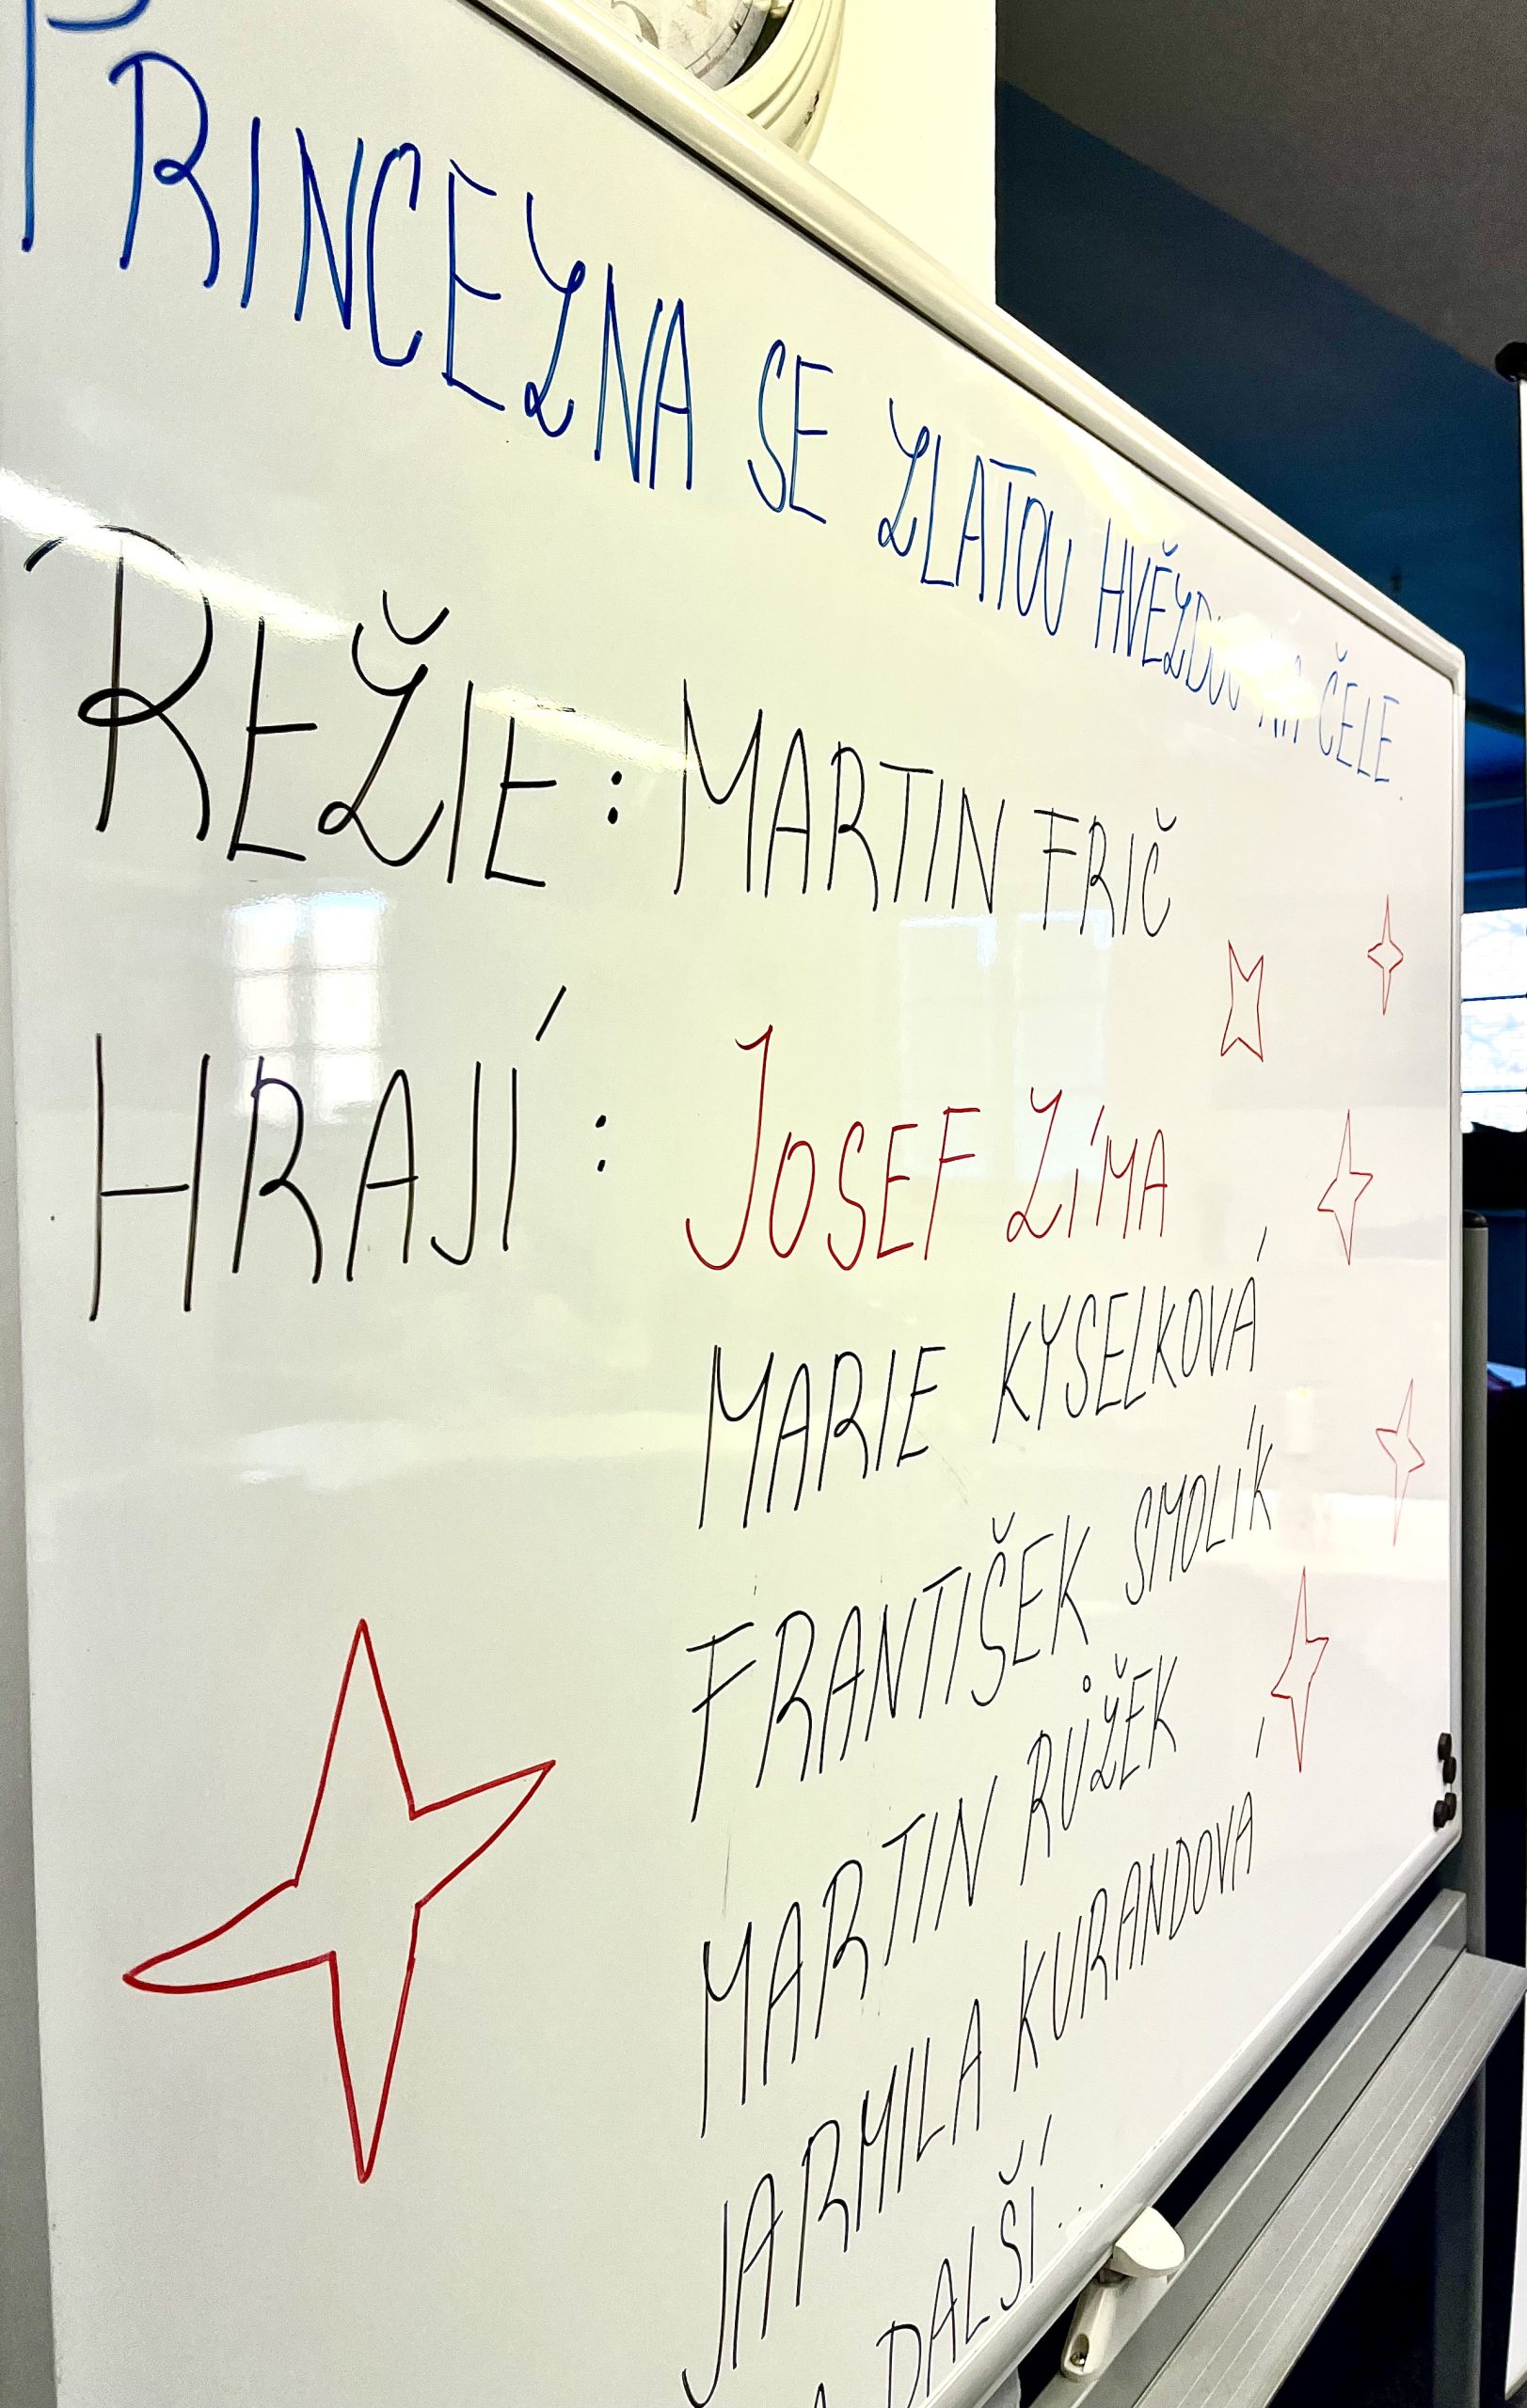 PRINCEZNA SE ZLATOU HVĚZDOU NA ČELE
REŽIE: MARTIN FRIČ
HRAJÍ: JOSEF ZÍMA
MARIE KYSELKOVÁ
FRANTIŠEK SMOLÍK
MARTIN RŮŽEK
JARMILA KURANDOVÁ
A DALŠÍ...